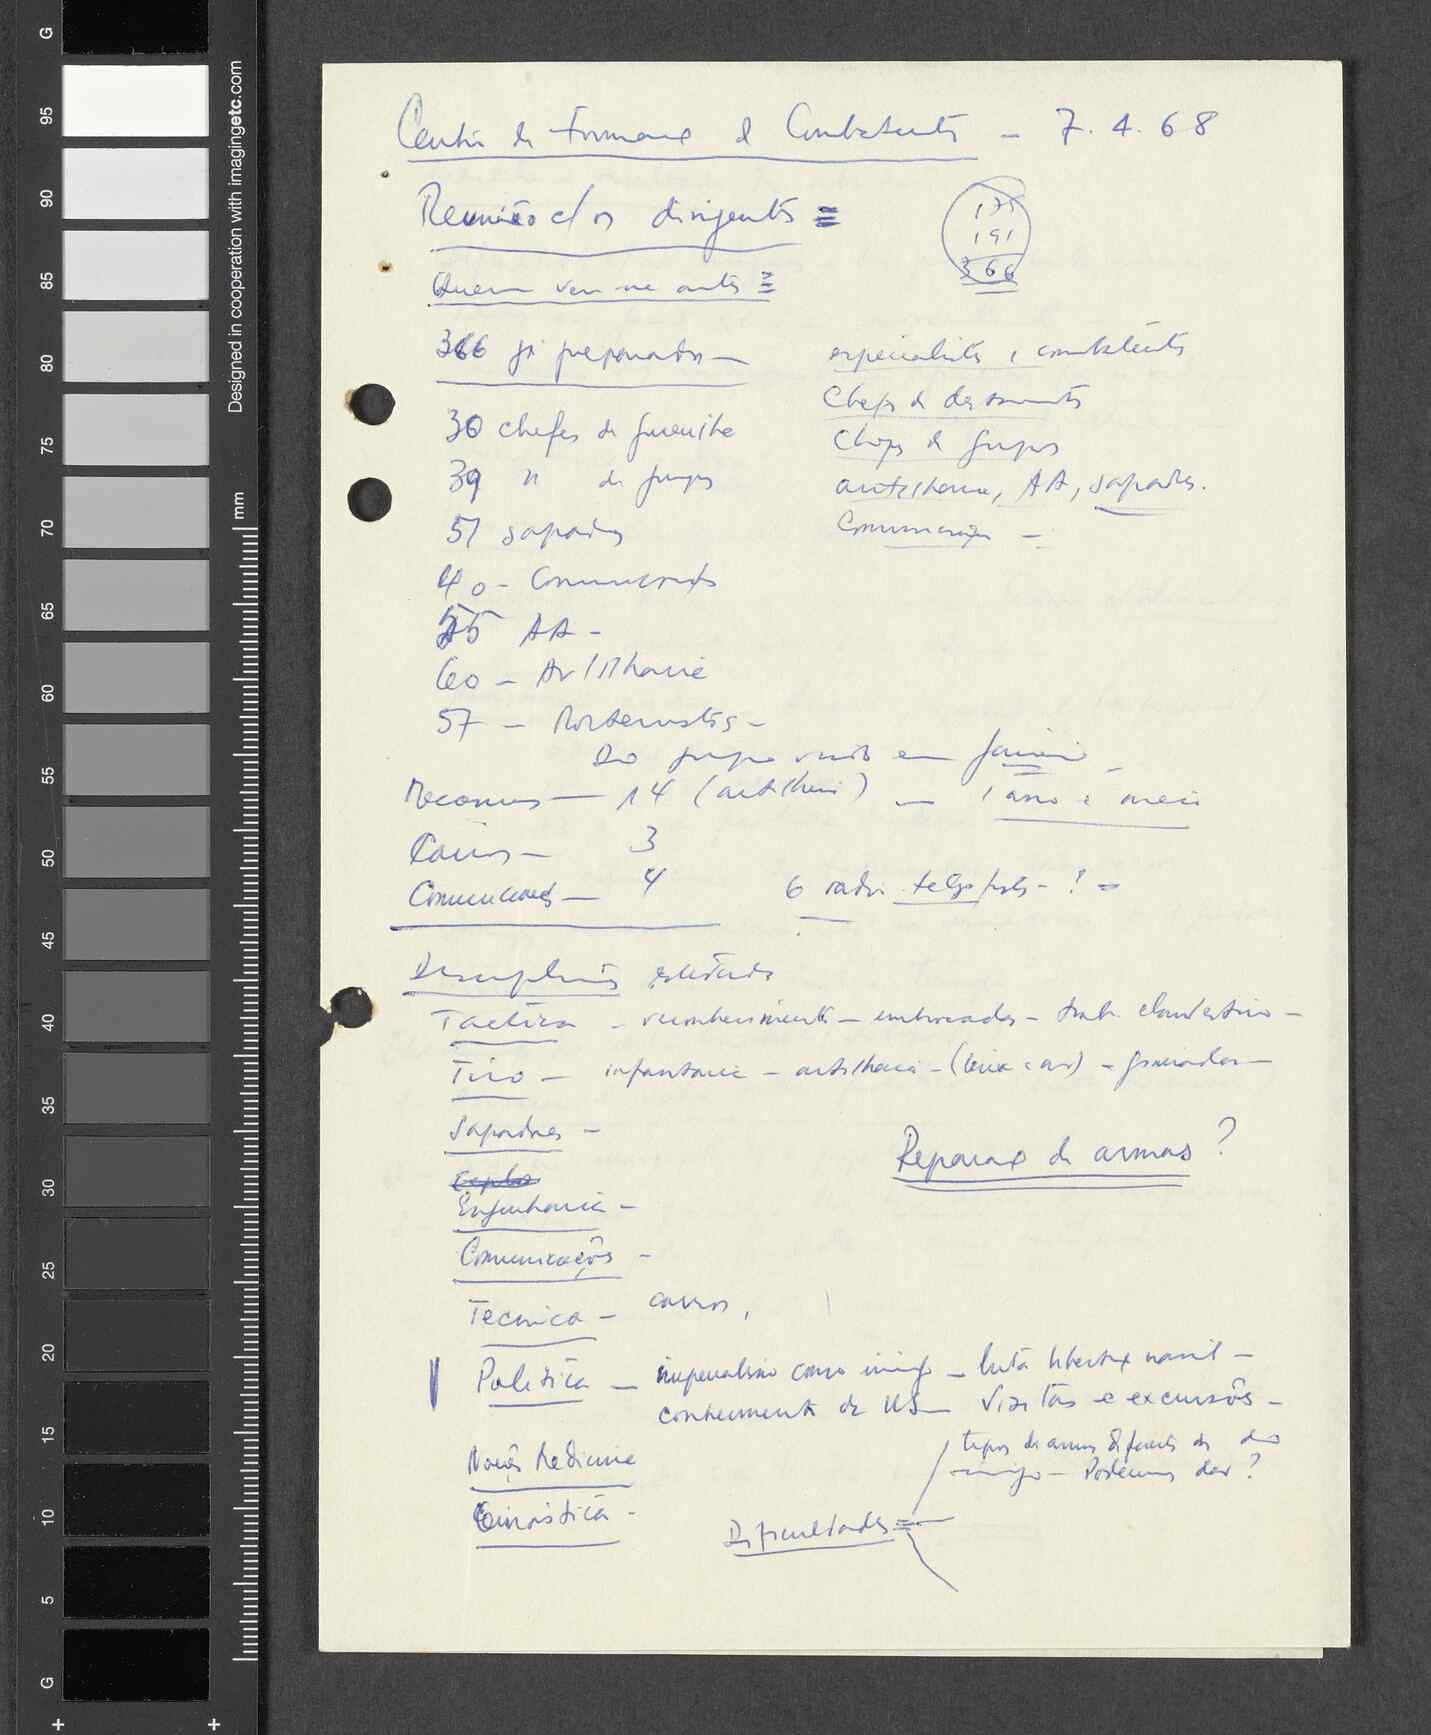 Centro de Formação de Combatentes – 7.4.68
Reunião c/ os dirigentes =
175
191
366
Quem veio antes =
366 já preparados –
30 chefes de guerrilha
39 " de grupos
51 sapadores
40 – Comunicações
55 AA –
60 – Artilharia
57 – Morteiristas –
especialistas e combatentes
Chefes de destacamentos
Chefes de grupos
artilharia, AA, sapadores.
Comunicações –
Do grupo vindo em Janeiro –
Mecânicos – 14 (artilharia) – 1 ano e meio
Carros – 3
Comunicações – 4
6 radio telegrafistas – ! =
Disciplinas estudadas
Tactica – reconhecimento – emboscadas – trab. clandestino –
Tiro – infantaria – artilharia – – granadas –
Sapadores –
Reparação de armas?
Engenharia –
Comunicações –
Tecnica – carros,
Politica – imperialismo como inimigo – luta libertação nacional –
conhecimento da US – Visitas e excursões –
Noções Medicina
Ginástica –
Dificuldades =
tipos de armas diferentes das do
inimigo – Podemos dar?
G
95
90
85
80
75
70
65
60
55
50
45
40
35
30
25
20
15
10
5
G
Designed in cooperation with imagingetc.com
mm